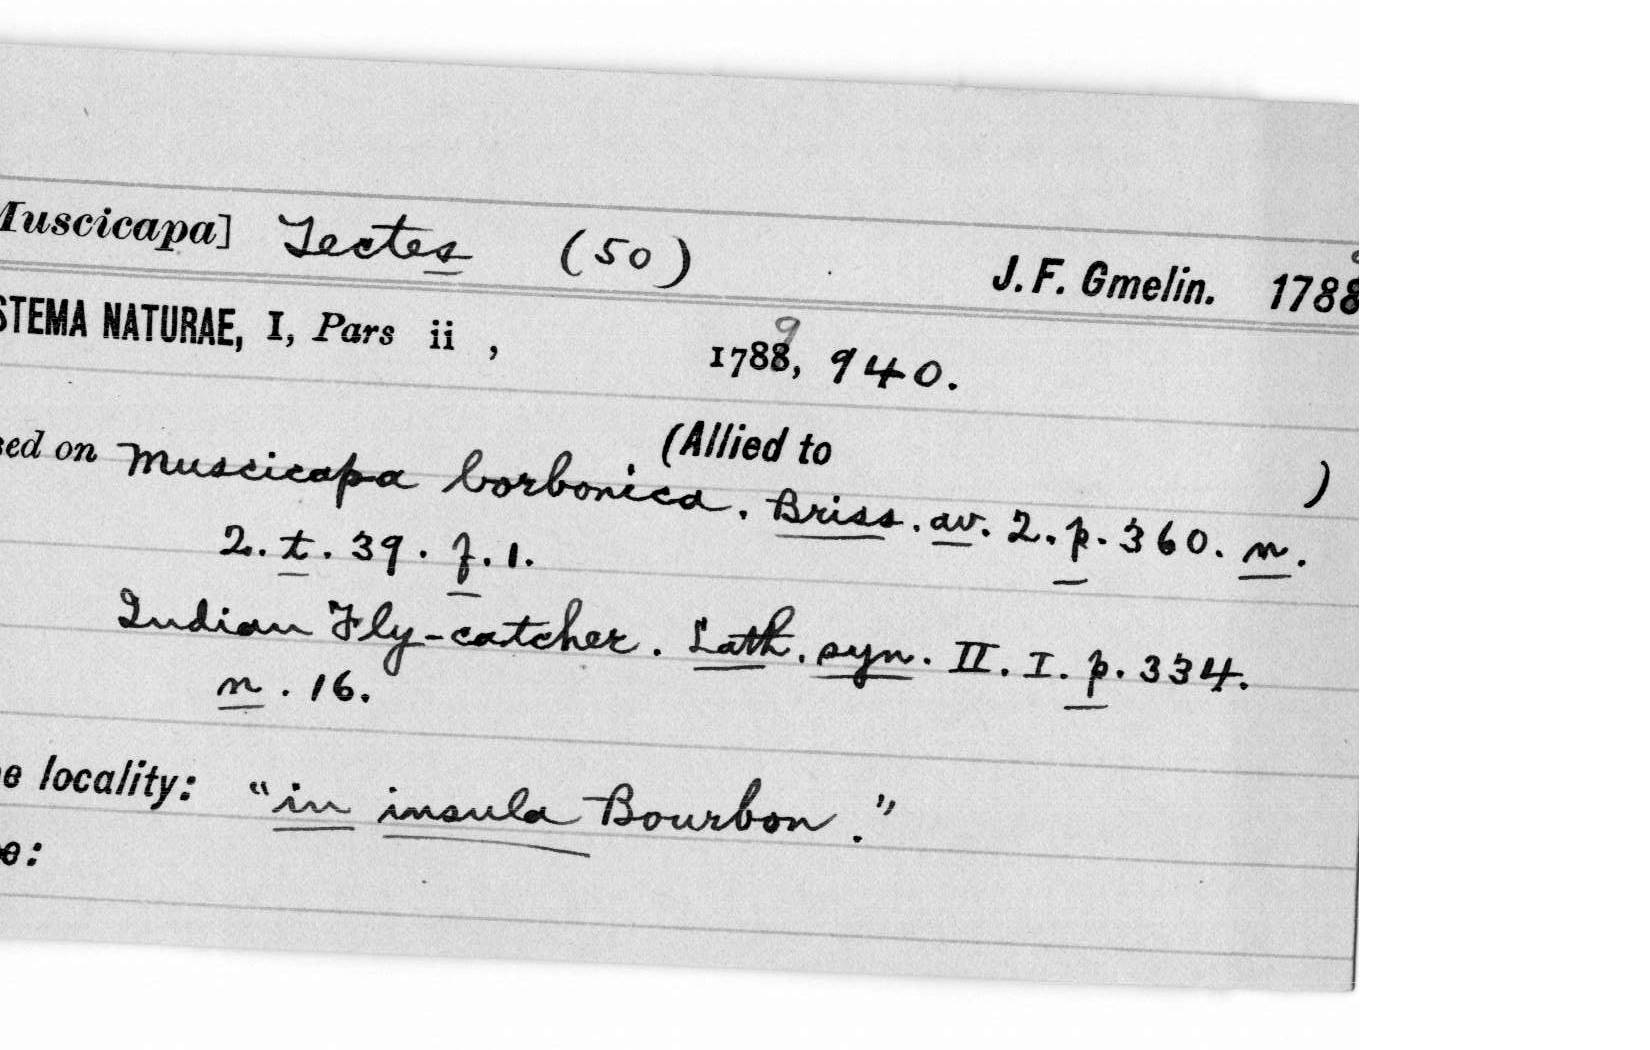 Muscicapa] Tectes (50) J. F. Gmelin. 1788
STEMA NATURAE, I, Pars ii , 1788, 9 940.
(Allied to )
sed on Muscicapa borbonica. Briss. av. 2. p. 360. n.
2. t. 39. f. 1.
Indian Fly-catcher. Lath. syn. II. I. p. 334.
n. 16.
e locality: "in insula Bourbon."
e: